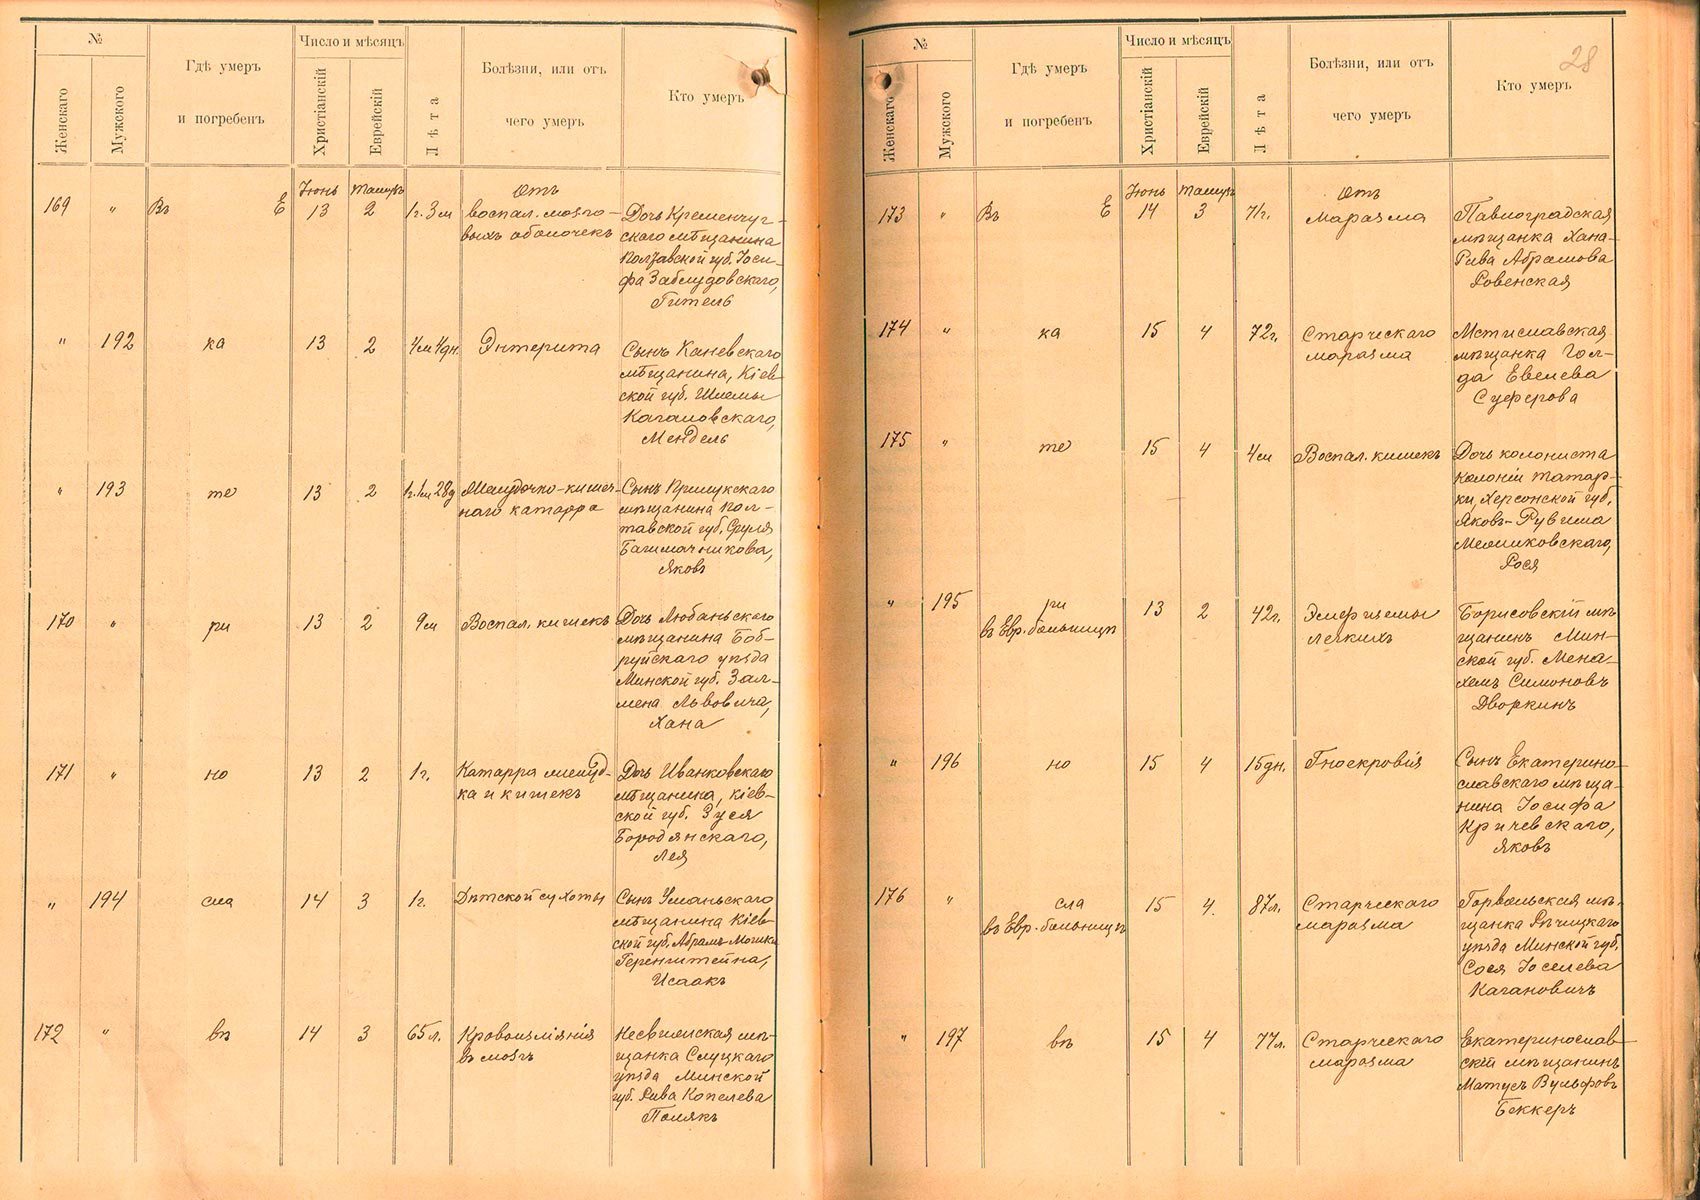 №
Женскаго
Мужского
Гдѣ умеръ
и погребенъ
Число и мѣсяцъ
Христіанскій
Еврейскій
Лѣта
Болѣзни, или отъ
чего умеръ
Кто умеръ
169
"
Въ Е
Іюнь
13
Тамузъ
2
1г. 3м
Отъ
воспал. мозго-
выхъ оболочекъ
Дочь Кременчуг-
скаго мѣщанина
Полтавской губ. Іоси-
фа Заблудовскаго,
Гитель
"
192
ка
13
2
4м 4дн.
Энтерита
Сынъ Каневскаго
мѣщанина, Кіев-
ской губ. Шлемы
Кагановскаго,
Мендель
"
193
те
13
2
1г. 1м 28д
Желудочно-кишеч-
наго катарра
Сынъ Прилукскаго
мѣщанина Пол-
тавской губ. Сруля
Башмачникова,
Яковъ
170
"
ри
13
2
9м
Воспал. кишекъ
Дочь Любаньскаго
мѣщанина Боб-
руйскаго уѣзда
Минской губ. Зал-
мена Львовича,
Хана
171
"
но
13
2
1г.
Катарра желуд-
ка и кишекъ
Дочь Иванковскаго
мѣщанина, Кіев-
ской губ. Зуся
Бородянскаго,
Лея
"
194
сла
14
3
1г.
Дѣтской сухоты
Сынъ Уманьскаго
мѣщанина Кіев-
ской губ. Абрамъ-Мошки
Геренштейна,
Исаакъ
172
"
вѣ
14
3
65 л.
Кровоизліянія
въ мозгъ
Несвижская мѣ-
щанка Слуцкаго
уѣзда Минской
губ. Рива Копелева
Полякъ
28
№
Женскаго
Мужского
Гдѣ умеръ
и погребенъ
Число и мѣсяцъ
Христіанскій
Еврейскій
Лѣта
Болѣзни, или отъ
чего умеръ
Кто умеръ
173
"
Въ Е
Іюнь
14
Тамузъ
3
71г.
Отъ
маразма
Павлоградская
мѣщанка Хана-
Рива Абрамова
Ровенская
174
"
ка
15
4
72г.
Старческаго
маразма
Мстиславская
мѣщанка Гол-
да Евелева
175
"
те
15
4
4м
Воспал. кишекъ
Дочь колониста
колоніи Татар-
ки, Херсонской губ.
Яковъ-Рувима
Рося
"
195
ри
въ Евр. больницѣ
13
2
42г.
Эмфиземы
легкихъ
Борисовскій мѣ-
щанинъ Мин-
ской губ. Мена-
хемъ Симоновъ
Дворкинъ
"
196
но
15
4
15дн.
Гноекровія
Сынъ Екатерино-
славскаго мѣща-
нина Іосифа
Кричевскаго,
Яковъ
176
"
сла
въ Евр. больницѣ
15
4
87л.
Старческаго
маразма
Горвольская мѣ-
щанка Рѣчицкаго
уѣзда Минской губ.
Сося Іоселева
Кагановичъ
"
197
вѣ
15
4
77л.
Старческаго
маразма
Екатеринослав-
скій мѣщанинъ
Матусъ Вульфовъ
Беккеръ